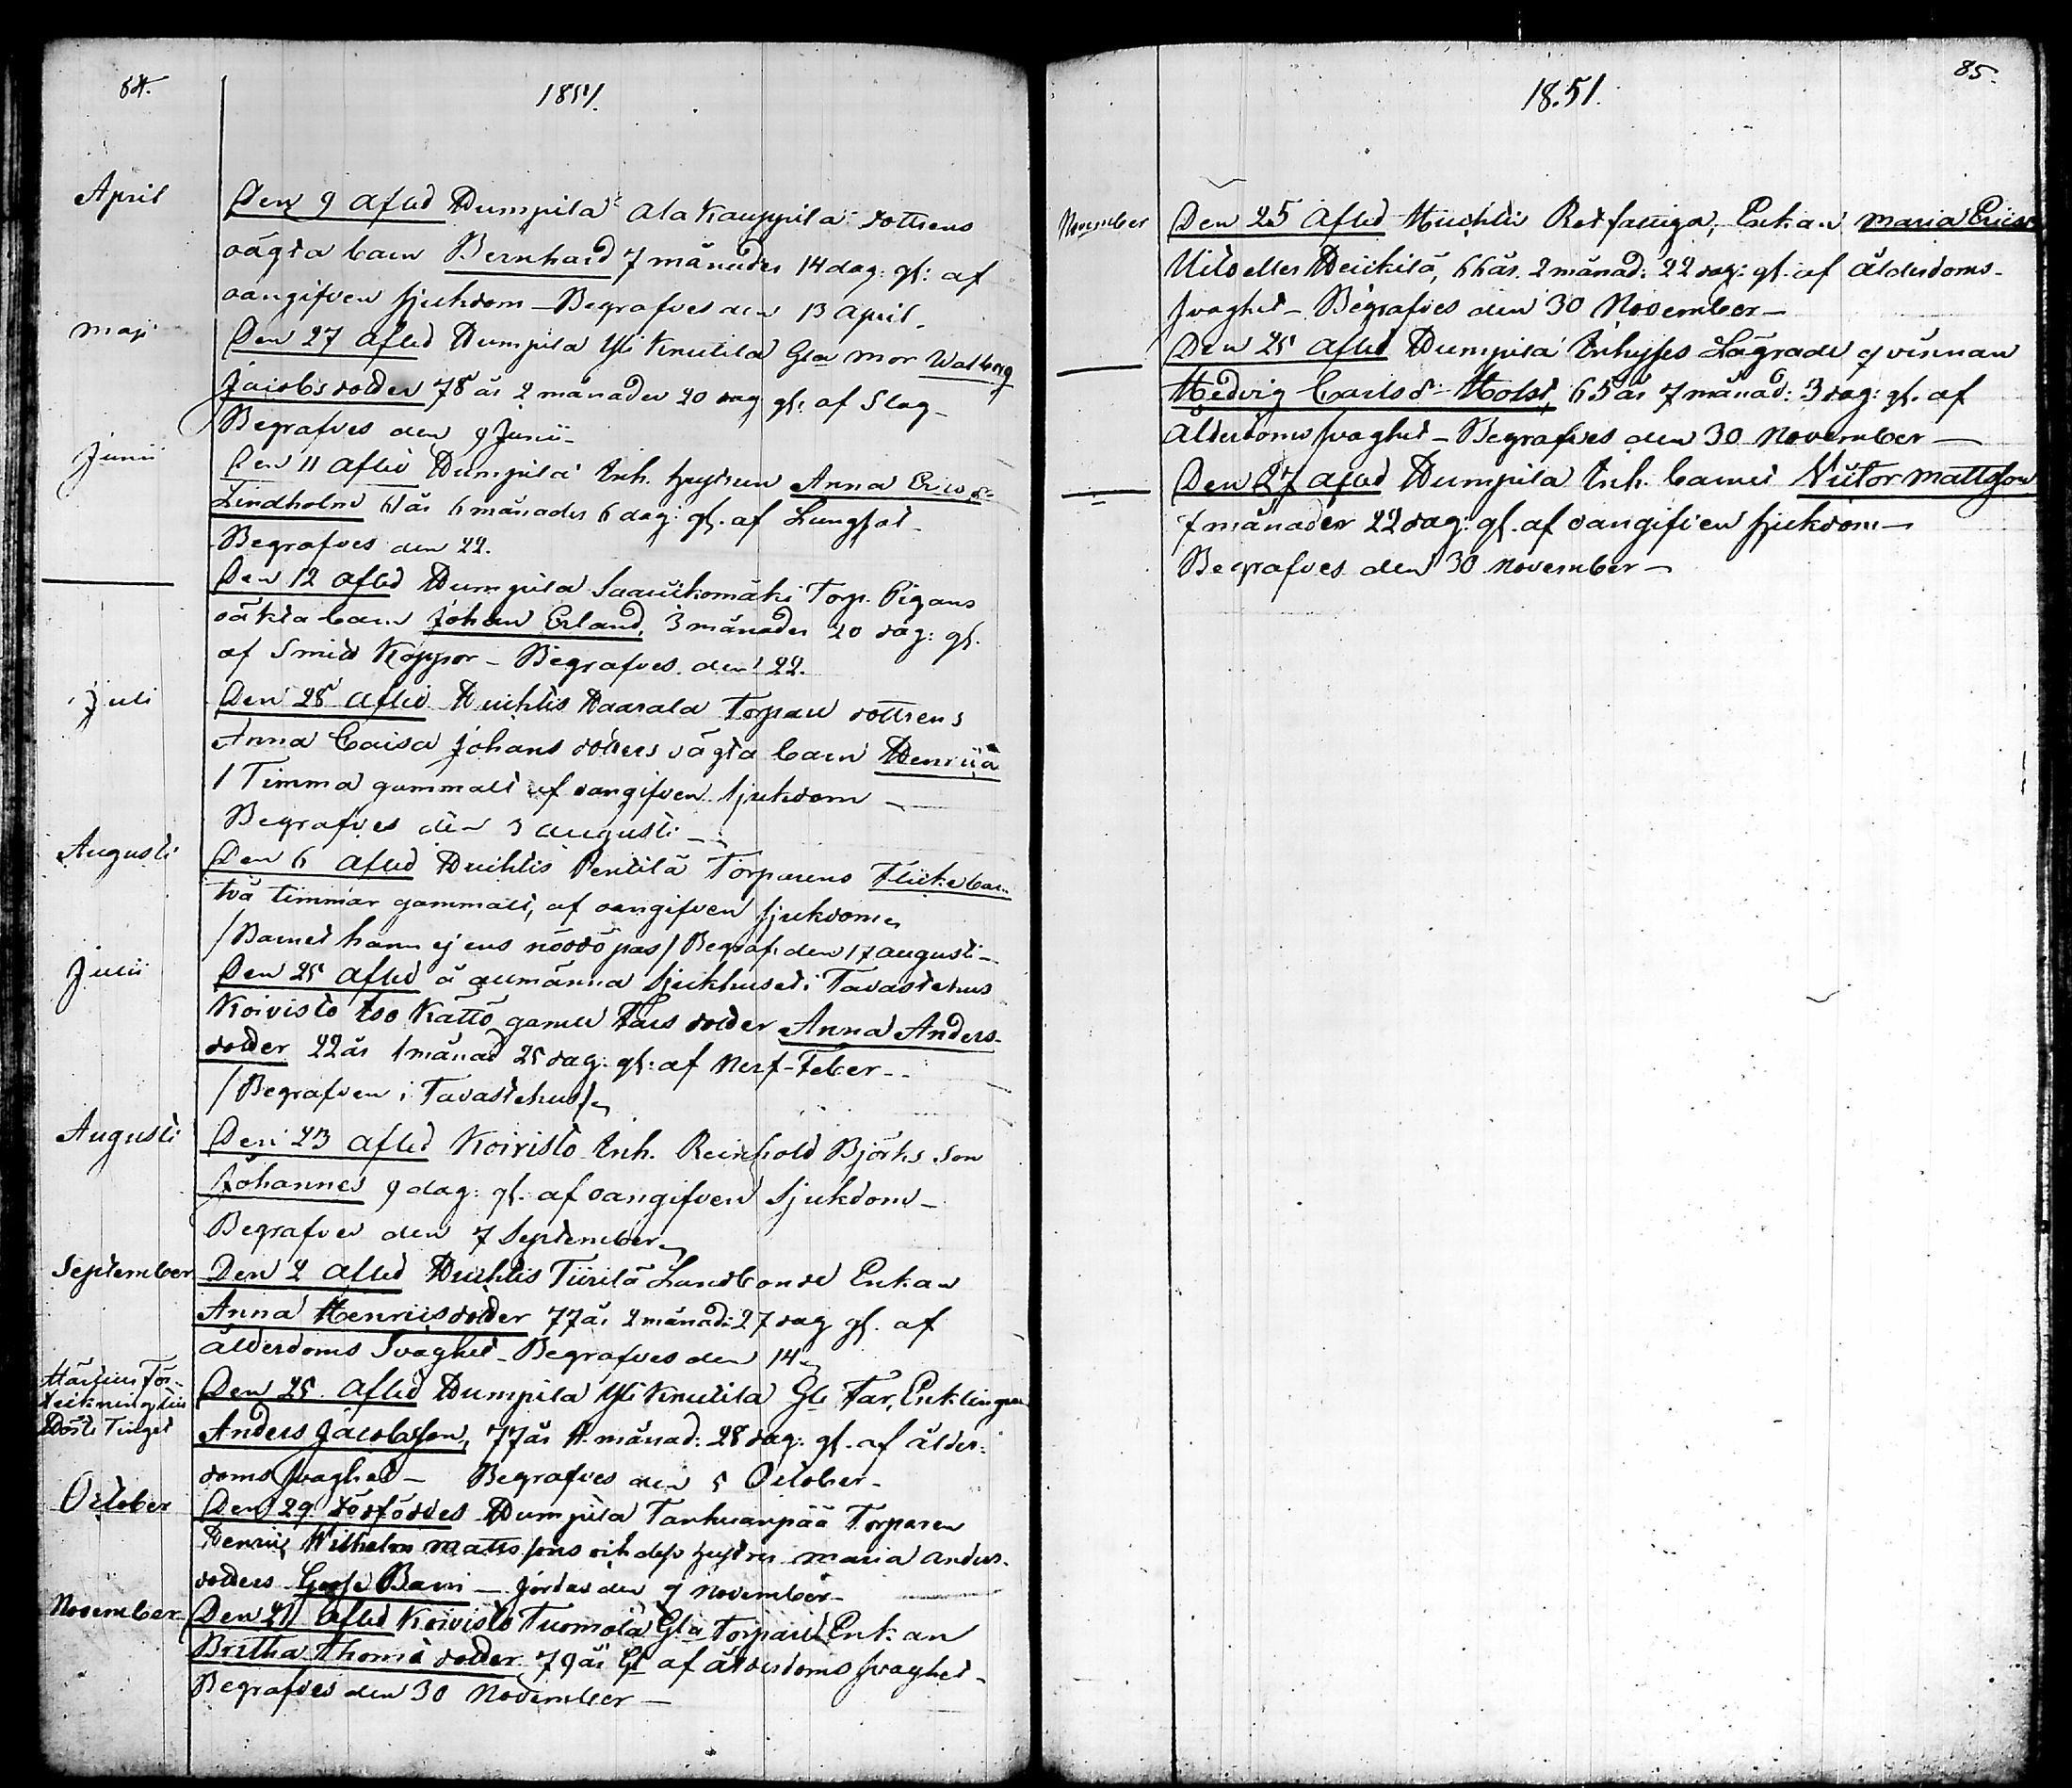 84.
1851.
April
Den 9 Afled Humpila Ala Kauppila dottrens
oägta barn Bernhard 7 månader 14 dag: gl: af
oangifven sjukdom - Begrafves den 13 April.
Maji
Den 27 Afled Humpila Yli Knutila Gla Mor Walborg
Jacobsdotter 78 år 2 månader 20 dag gl: af Slag -
Begrafves den 9 Junii -
Junii
Den 11 Afled Humpila Inh. hustrun Anna Erics d:
Lindholm 61 år 6 månader 6 dag: gl. af Lungsot -
Begrafves den 22.
Den 12 Afled Humpila Saarikomäki Torp. Pigans
oäkta barn Johan Erland, 3 månader 20 dag: gl.
af Smitt Koppor - Begrafves den 22.
Juli
Den 28 Afled Huihtis Haarala Torpare dottrens
Anna Caisa Johans dotters oägta barn Henrica
1 Timma gammalt af oangifven sjukdom -
Begrafves den 3 Augusti -
Augusti
Den 6 Afled Huihtis Pentilä Torparens Flickebarn
två timmar gammalt, af oangifven sjukdom
/Barnet hann ej ens nöddöpas/ Begraf. den 17 Augusti -
Julii
Den 25 Afled å allmänna Sjukhuset i Tavastehus
Koivisto Iso Kättö gamle Fars dotter Anna Anders-
dotter 22 år 1 månad 25 dag: gl: af Nerf-Feber -
/Begrafven i Tavastehus/
Augusti
Den 23 Afled Koivisto Inh. Reinhold Björks Son
Johannes 9 dag: gl. af oangifven Sjukdom -
Begrafves den 7 September
September
Den 2 Afled Huihtis Tiirilä Landbonde Enkan
Anna Henricsdotter 77 år 2 månad: 27 dag gl. af
ålderdoms Svaghet - Begrafves den 14
Härtill För-
teckning till
Höste Tinget
Den 25 Afled Humpila Yli Knutila Gle Far, Enklingen
Anders Jacobsson, 77 år månad: 28 dag: gl. af ålder-
doms svaghet - Begrafves den 5 October -
October
Den 29 dödföddes Humpila Tanhuanpää Torparen
Henric Wilhelm Mattssons och dess hustrus Maria Anders-
dotters Barn - jordas den 9 November -
November
Den 21 Afled Koivisto Tuomola Gla Torpare Enkan
Britha Thomæ dotter 79 år Gl af ålderdoms svaghet -
Begrafves den 30 November -
85.
18.51.
November
Den 25 Afled Huihtis Rotfattiga, Enkan Maria Erics
Uito eller Heickilä, 66 år. 2 månad: 22 dag: gl. af ålderdoms-
svaghet - Begrafves den 30 November -
Den 25 Afled Humpila Inhyses Lägrade qvinnan
Hedvig Carls d: Holst, 65 år 7 månad: 3 dag: gl. af
ålderdoms svaghet - Begrafves den 30 November -
Den 27 Afled Humpila Inh. barnet Victor Mattsson
7 månader 22 dag: gl. af oangifven sjukdom -
Begrafves den 30 November -